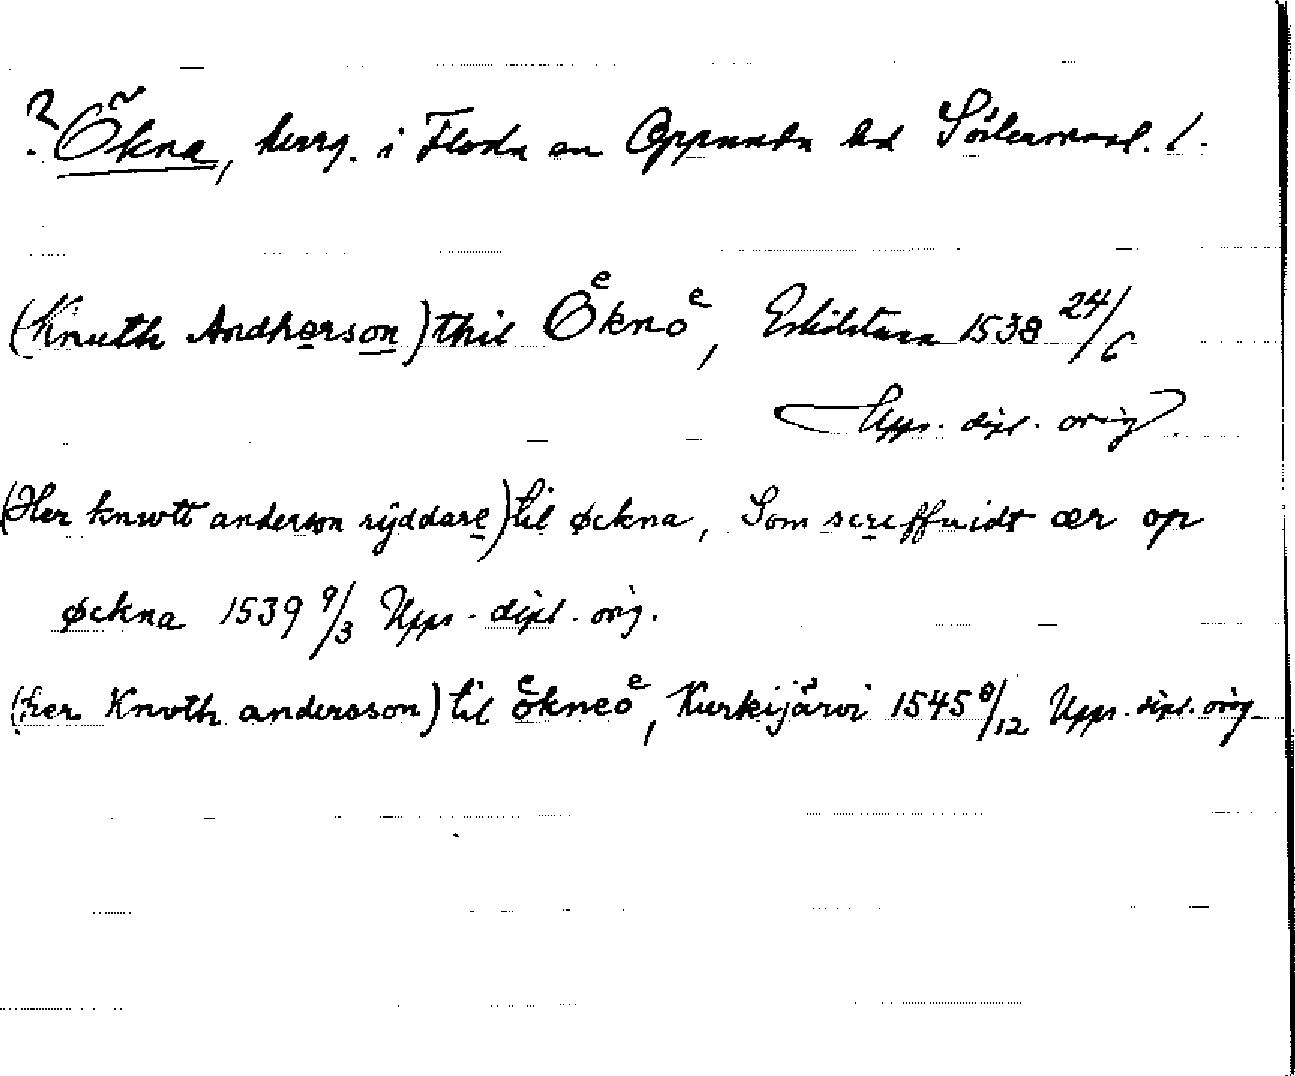 ? Ökna, herrg. i Floda sn Oppunda hd Södermanl. l.
(Knuth Andherson) thil Oͤknoͤ, Eskilstuna 1538 24/6
Upps. dipl. orig.
(Her knwtt anderson rÿddare) til øckna, Som screffuidt ær op
øckna 1539 9/3 Upps. dipl. orig.
(her Knvth andersson) til oͤkneoͤ, Kurkijärvi 1545 8/12 Upps. dipl. orig.